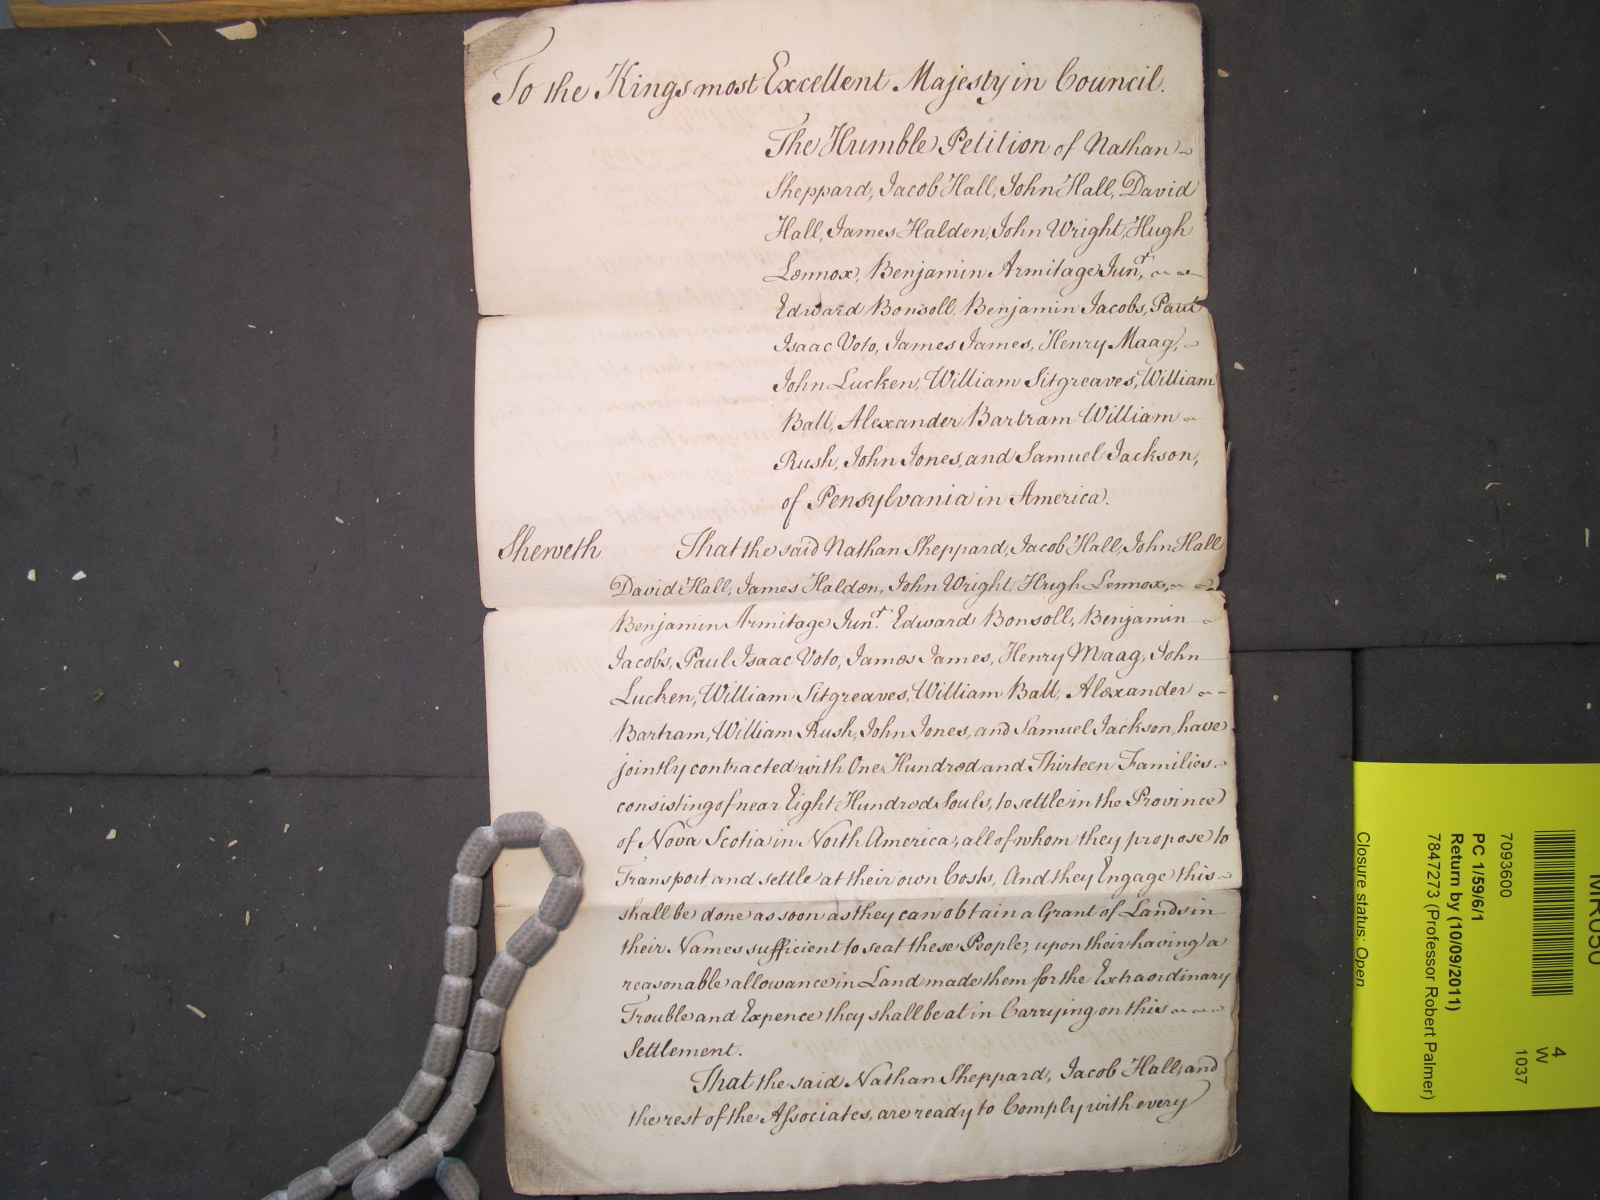 To the Kings most Excellent Majesty in Council.
The Humble Petition of Nathan
Sheppard, Jacob Hall, John Hall, David
Hall, James Halden, John Wright, Hugh
Lennox, Benjamin Armitage Junr.
Edward Bonsoll, Benjamin Jacobs, Paul
Isaac Voto, James James, Henry Maag,
John Lucken, William Sitgreaves, William
Ball, Alexander Bartram William
Rush, John Jones, and Samuel Jackson,
of Pensylvania in America.
Sheweth That the said Nathan Sheppard, Jacob Hall, John Hall
David Hall, James Halden, John Wright, Hugh Lennox,
Benjamin Armitage Junr. Edward Bonsoll, Benjamin
Jacobs, Paul Isaac Voto, James James, Henry Maag, John
Lucken, William Sitgreaves, William Ball, Alexander
Bartram, William Rush, John Jones, and Samuel Jackson, have
jointly contracted with One Hundred and Thirteen Families
consisting of near Eight Hundred Souls, to settle in the Province
of Nova Scotia in North America, all of whom they propose to
Transport and settle at their own Costs, And they Engage this
shall be done as soon as they can obtain a Grant of Lands in
their Names sufficient to seat these People, upon their having a
reasonable allowance in Land made them for the Extraordinary
Trouble and Expence they shall be at in Carrying on this
Settlement.
That the said Nathan Sheppard, Jacob Hall, and
the rest of the Associates, are ready to Comply with every
MR050
4
W
1037
7093600
PC 1/59/6/1
Return by (10/09/2011)
7847273 (Professor Robert Palmer)
Closure status: Open